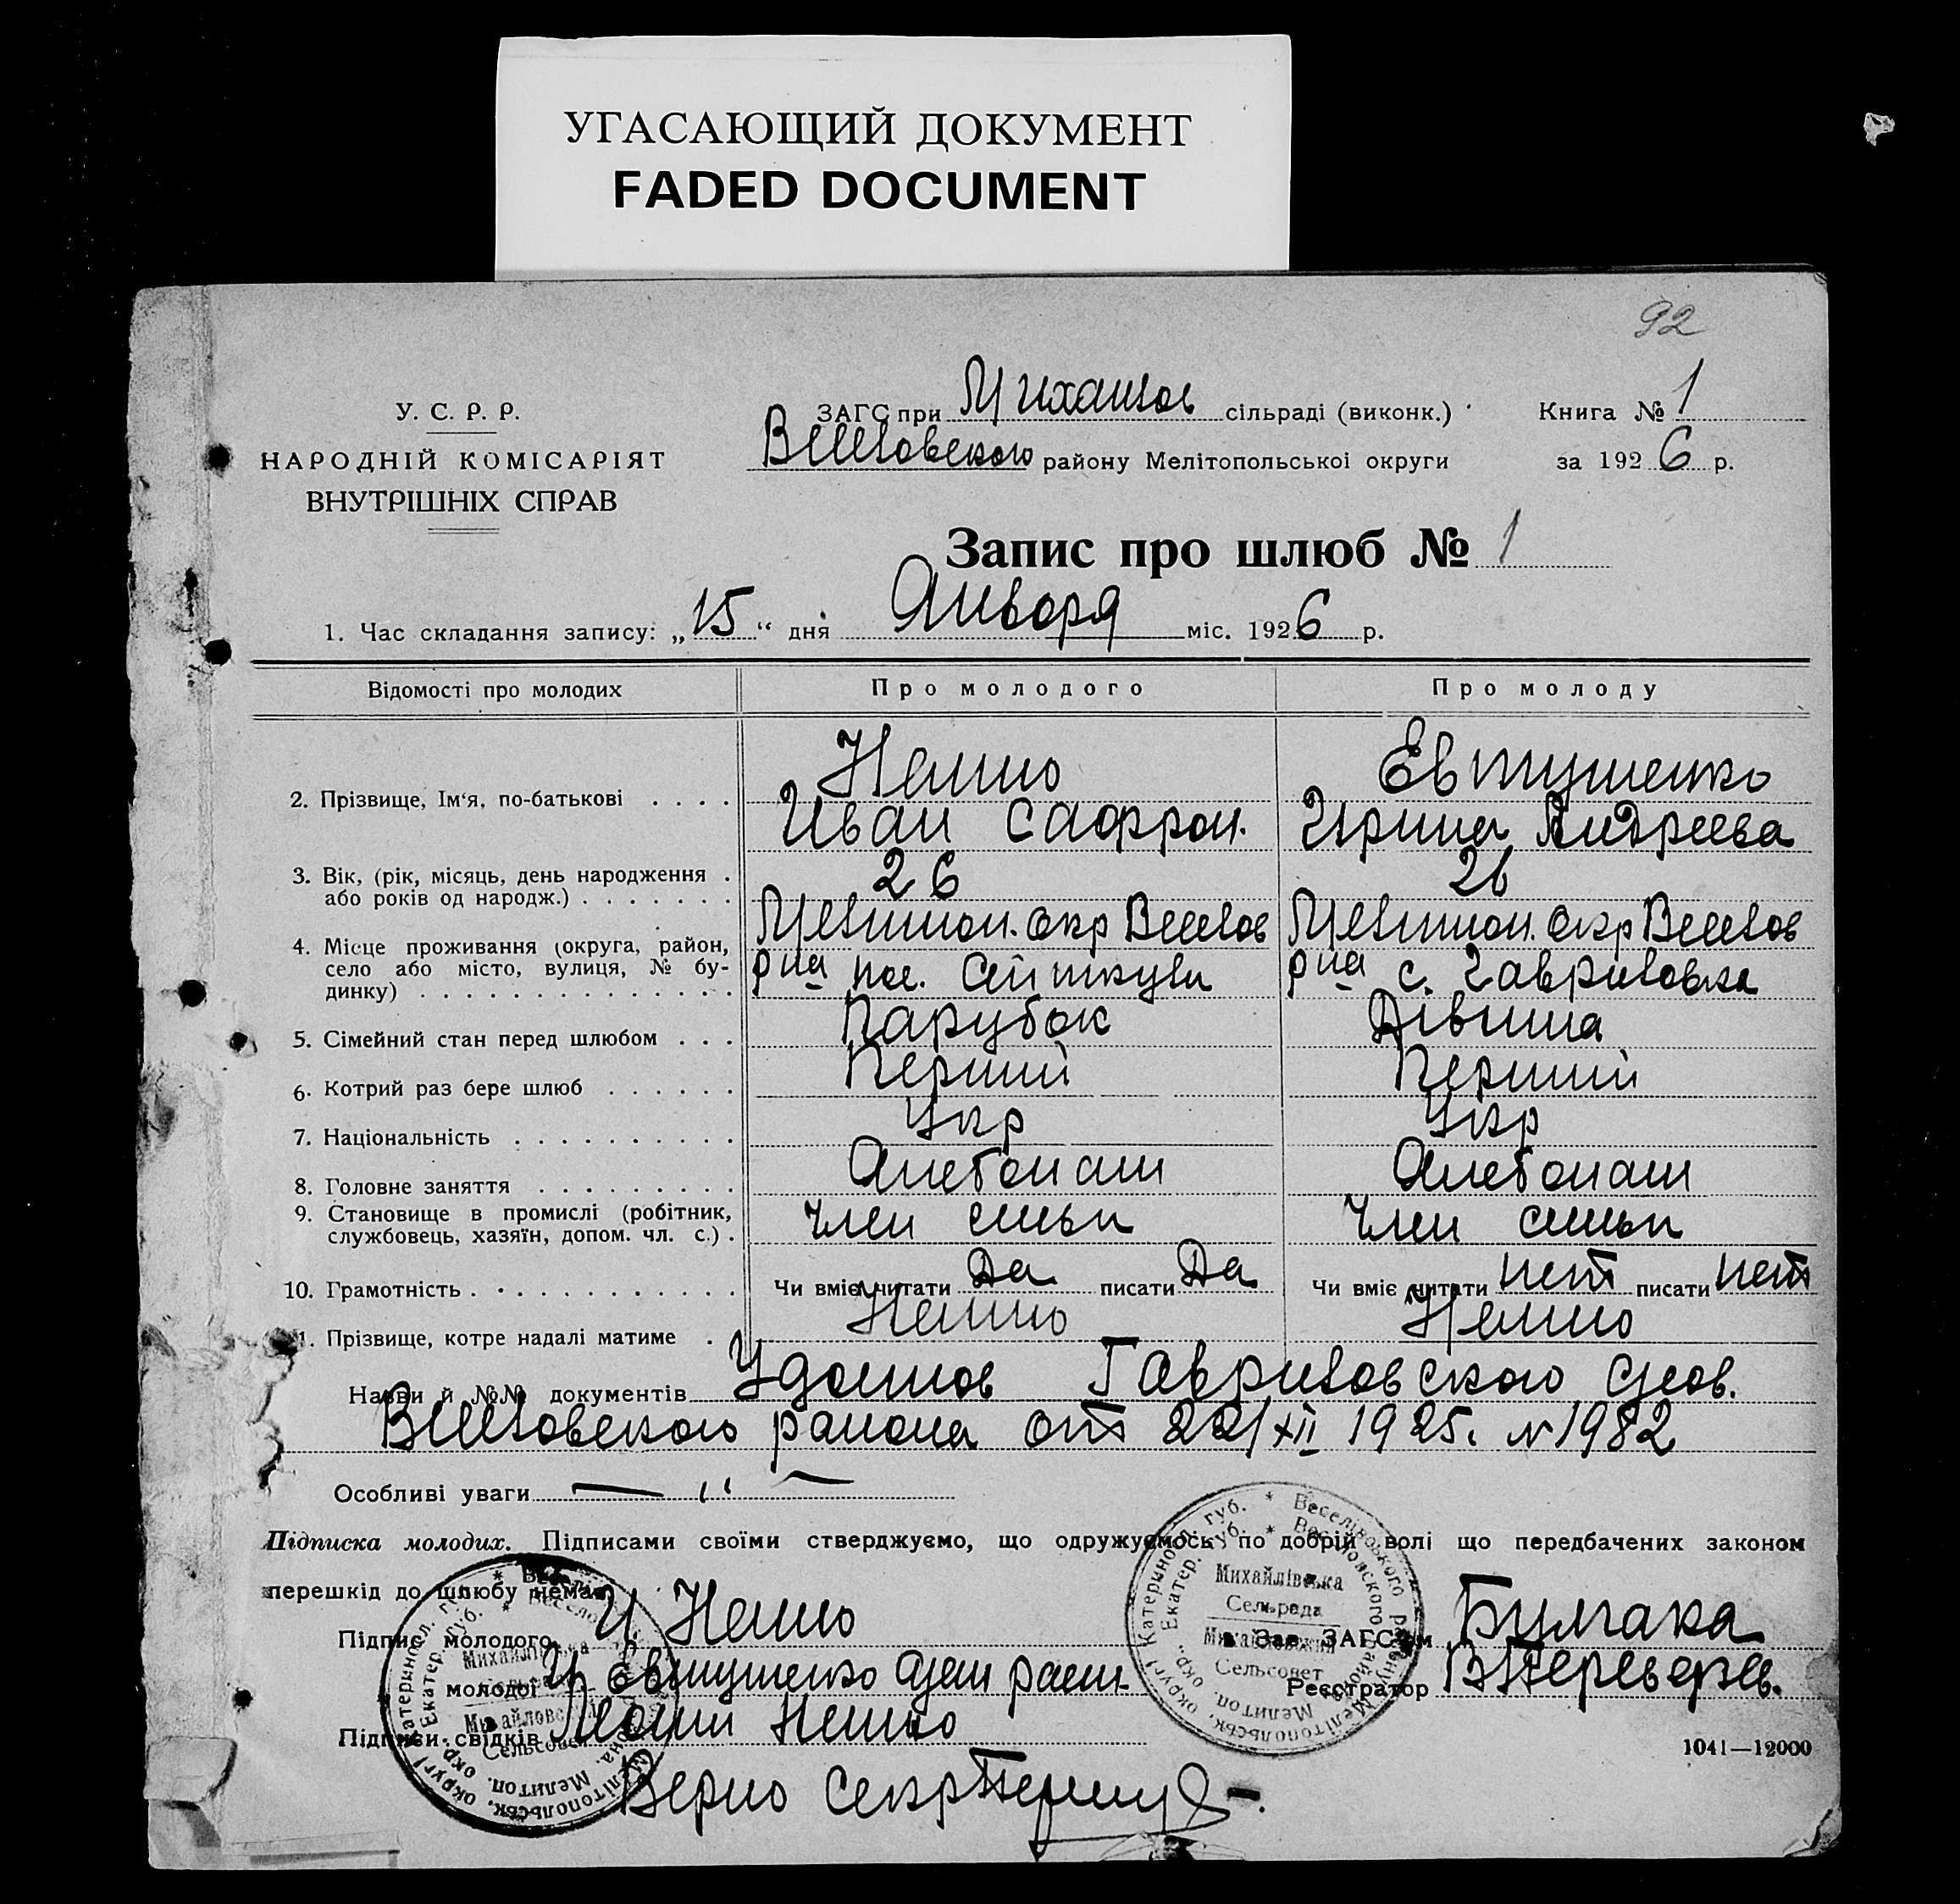 УГАСАЮЩИЙ ДОКУМЕНТ
FADED DOCUMENT
92
У. С. Р. Р.
НАРОДНІЙ КОМІСАРІЯТ
ВНУТРІШНІХ СПРАВ
ЗАГС при Михайлов сільраді (виконк.)
Веселовского району Мелітопольської округи
Книга № 1
за 1926 р.
Запис про шлюб № 1
1. Час складання запису: „15“ дня Января міс. 1926 р.
Відомості про молодих Про молодого Про молоду
2. Прізвище, Ім'я, по-батькові . . . . Нешно Евтушенко
Иван Сафрон. Ирина Андреева
3. Вік, (рік, місяць, день народження . 26 26
або років од народж.) . . . . . . .
4. Місце проживання (округа, район, Мелитоп. окр Веселов Мелитоп. окр Веселов
село або місто, вулиця, № бу- рна пос. рна с. Гавриловка
динку) . . . . . . . . . . . . . .
5. Сімейний стан перед шлюбом . . . Парубок Дівчина
6. Котрий раз бере шлюб . . . . . . Перший Перший
7. Національність . . . . . . . . . . Укр Укр
8. Головне заняття . . . . . . . . . Хлебопаш Хлебопаш
9. Становище в промислі (робітник, Член семьи Член семьи
службовець, хазяїн, допом. чл. с.) .
10. Грамотність . . . . . . . . . . . . Чи вміє читати Да писати Да Чи вміє читати нет писати нет
11. Прізвище, котре надалі матиме . Нешно Нешно
Назви й №№ документів Удостов Гавриловского сов.
Веселовского района от 22/XII 1925. № 1982
Особливі уваги — " —
Підписка молодих. Підписами своїми стверджуємо, що одружуємось по добрій волі що передбачених законом
перешкід до шлюбу нема
Підпис молодого И Нешно
молодої И Евтушенко
Підписи свідків Нешно
Верно Секр
Михайлівська
Сельрада
Михайловский
Сельсовет
Михайлівська
Сельрада
Михайловский
Сельсовет
Зав. ЗАГС'ом Булгака
Реєстратор
1041—12000